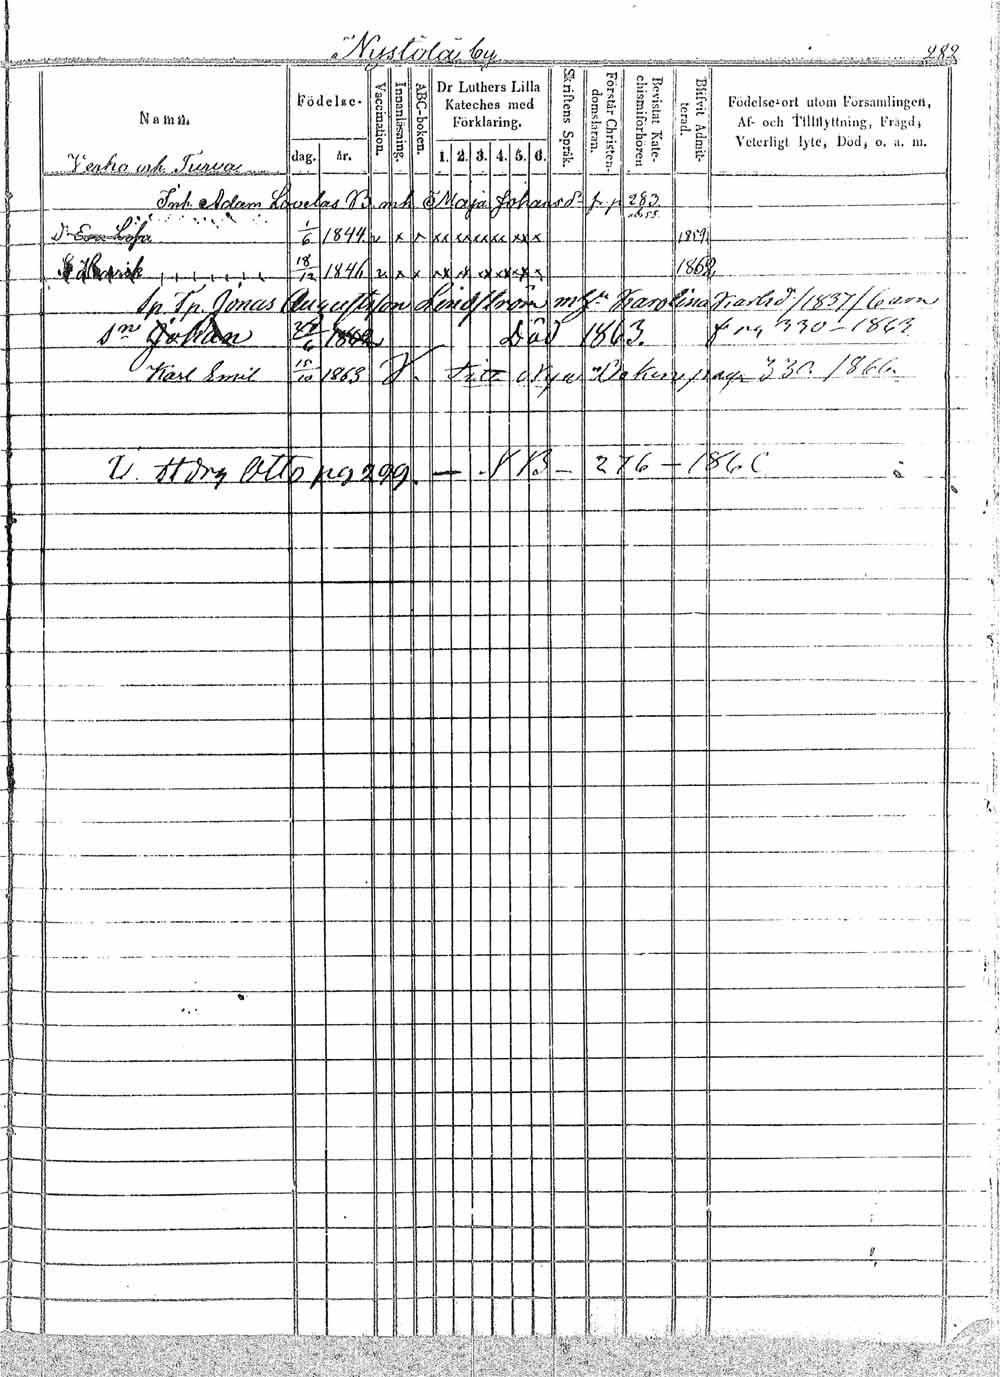 Nystölä by 282
Namn.
Födelse-
dag. år.
Vaccination.
Innanläsning.
ABC-boken.
Dr Luthers Lilla
Kateches med
Förklaring.
1. 2. 3. 4. 5. 6.
Skriftens Språk.
Förstår Christen-
domsläran.
Bevistat Kate-
chismiförhören
Blifvit Admit-
terad.
Födelse-ort utom Församlingen,
Af- och Tillflyttning, Frägd,
Veterligt lyte, Död, o. a. m.
Verho och Turva
Inh. Adam B mh Maja Johansd. p 283
Lisa 1/6 1844 v x x xx xx xx xx xx x 1859
Henrik 18/12 1846 v x x 1862
Sp. Tp. Jonas Augustsson Lindström m Karolina Karlsd /1837/
Sn Johan 1862 Död 1863. 330 - 1863
Karl Emil 15/10 1863 V. Nya Boken pag 330 1866
Otto pg 299. — NB — 276 —